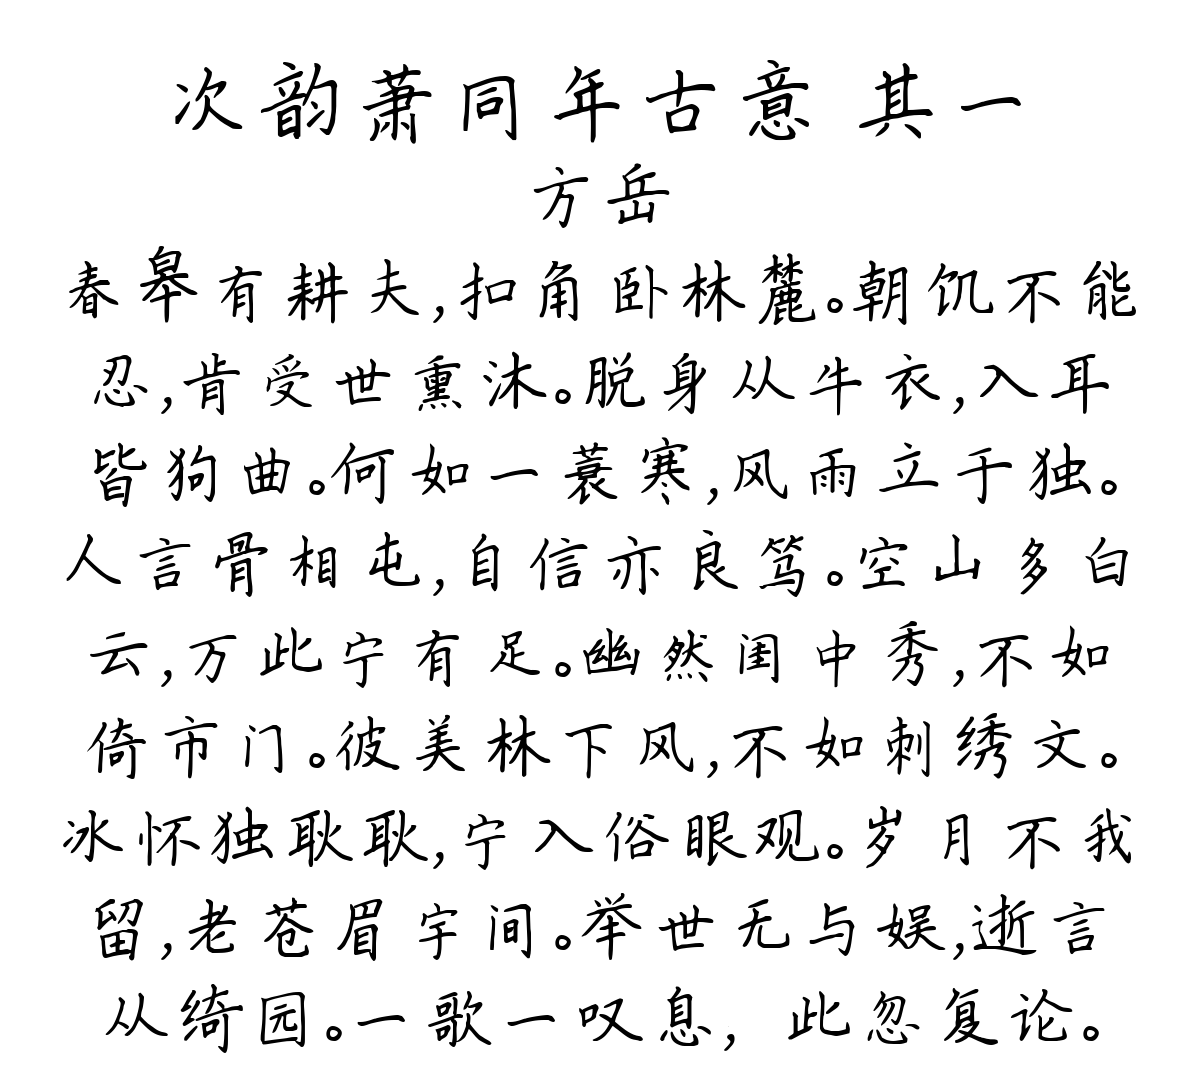 次韵萧同年古意 其一
方岳
春皋有耕夫,扣角卧林麓。朝饥不能
忍,肯受世熏沐。脱身从牛衣,入耳
皆狗曲。何如一蓑寒,风雨立于独。
人言骨相屯,自信亦良笃。空山多白
云,万此宁有足。幽然闺中秀,不如
倚市门。彼美林下风,不如刺绣文。
冰怀独耿耿,宁入俗眼观。岁月不我
留,老苍眉宇间。举世无与娱,逝言
从绮园。一歌一叹息，此忽复论。